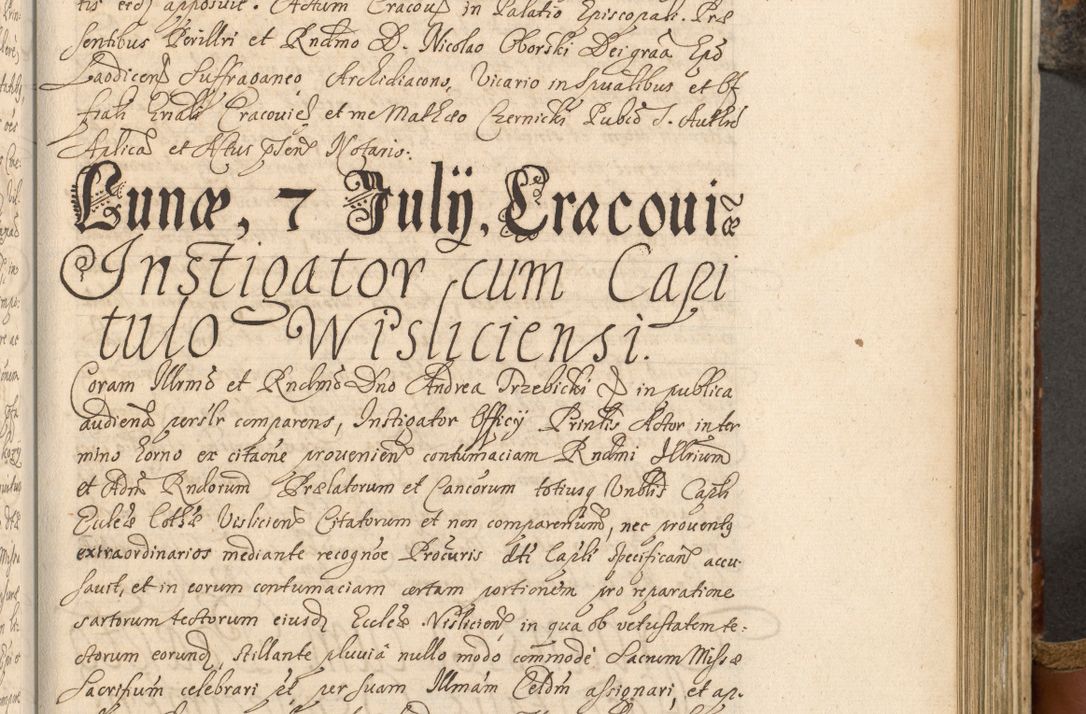 tis eedz apposuit. Actum Cracoviæ in Palatio Episcopali. Præ
sentibus Perillri et Rndmo D. Nicolao Oborski Dei graã Epõ
Laodicens Suffraganeo, Archidiacono, Vicario in Spũalibus et Of
ficiali Gnãli Cracovien et me Mathæo Czernicki Pubco S. Autte
Aplica et Actus pñtis Notario.
Lunæ, 7 Julij, Cracoviæ
Instigator cum Capi
tulo Wisliciensi.
Coram Illrmo et Rndmo Dno Andrea Trzebicki in publica
audiena persõlr comparens, Instigator Officij Prñtis Actor in ter
mino horno ex citaõne provenien contumaciam Rndmi Illrium
et Adm Rndorum Prælatorum et Cancorum totiusq Vnblis Capli
Ecclæ Collæ Vislicien Citatorum et non comparenium, nec proventq
extraordinarios mediante recognõe Procuris dti Capli specifican accu
savit, et in eorum contumaciam certam portionem pro reparatione
sartorum tectorum eiusd Ecclæ Vislicien, in qua ob vetustatem te-
ctorum eorund, stillante pluviâ nullo modo commodè Sacrum Missæ
Sacrifium celebrari pt, per suam Illmam Celdm assignari, et ap-